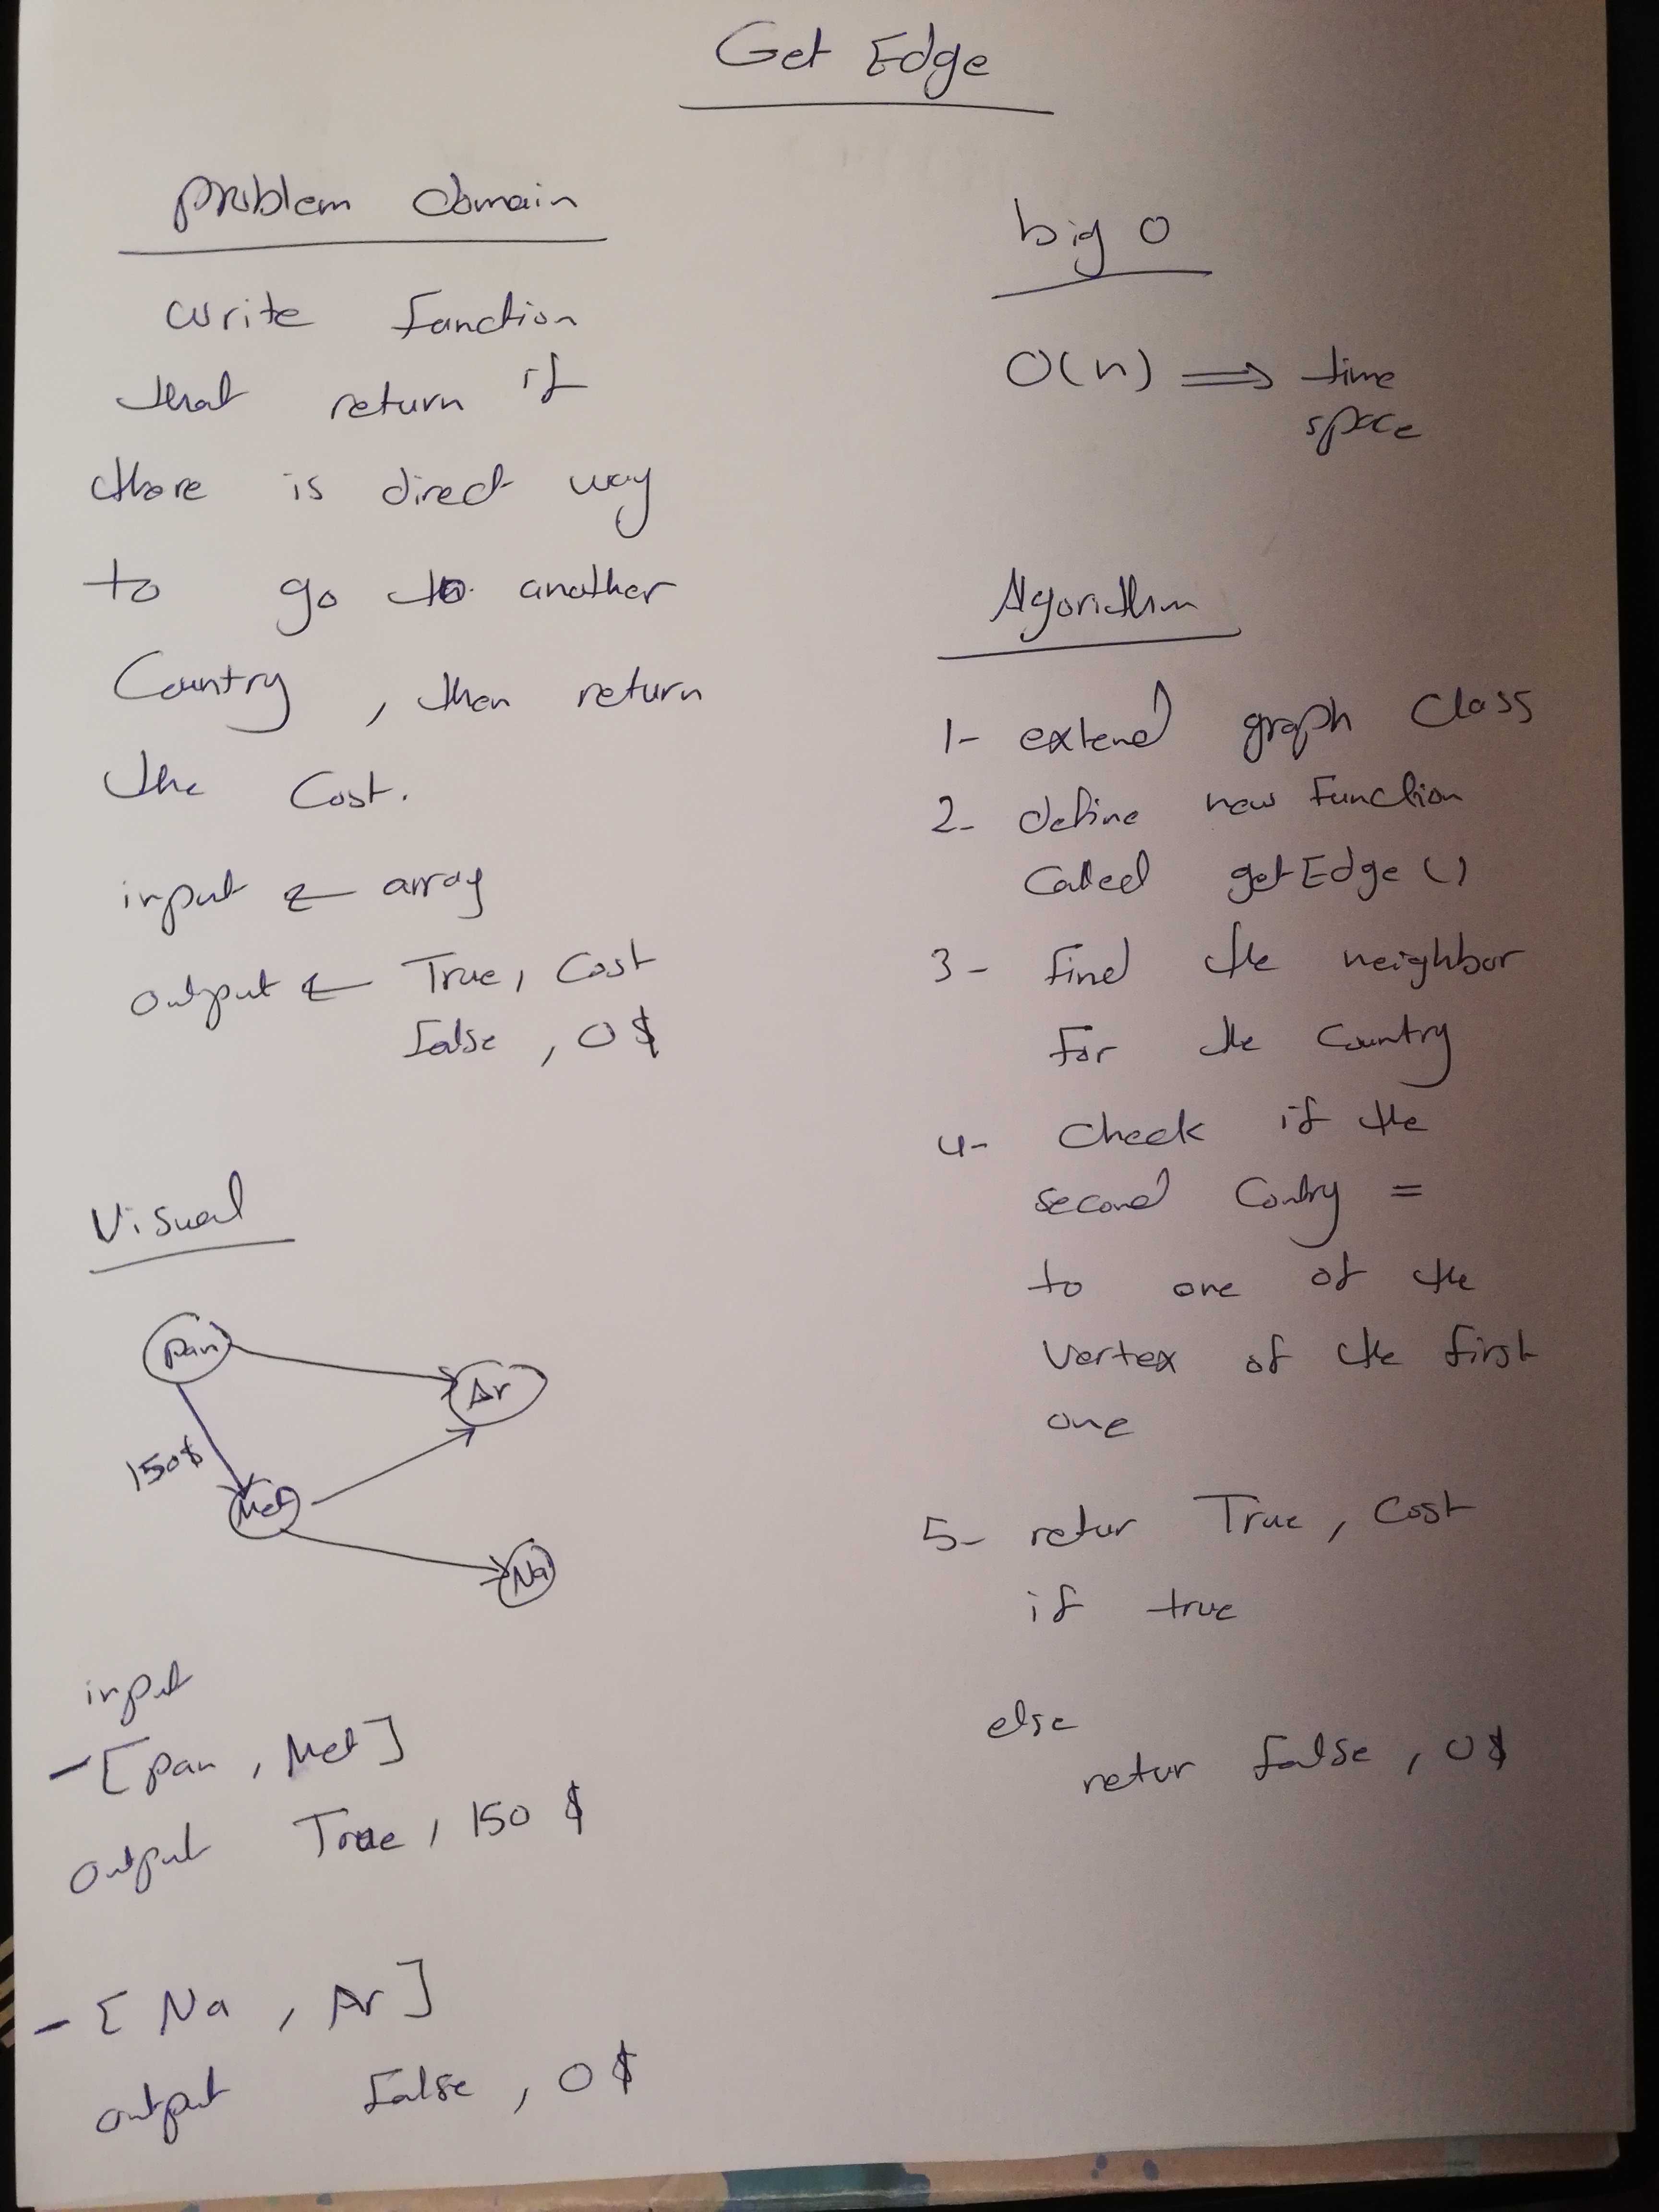 Get Edge
problem domain
write function
that return if
there is direct way
to go to another
Country , then return
the Cost.
input ← array
output ← True, Cost
false , 0 $
Visual
Pan
Ar
150$
Met
Na
input
- [pan , Met]
output True, 150 $
- [ Na , Ar ]
output false , 0 $
big O
O(n) ⇒ time
space
Algorithm
1- extend graph Class
2- define new Function
Called getEdge ()
3- find the neighbor
for the Country
4- Check if the
second Contry =
to one of the
Vertex of the first
one
5- retur True, Cost
if true
else
retur false , 0$